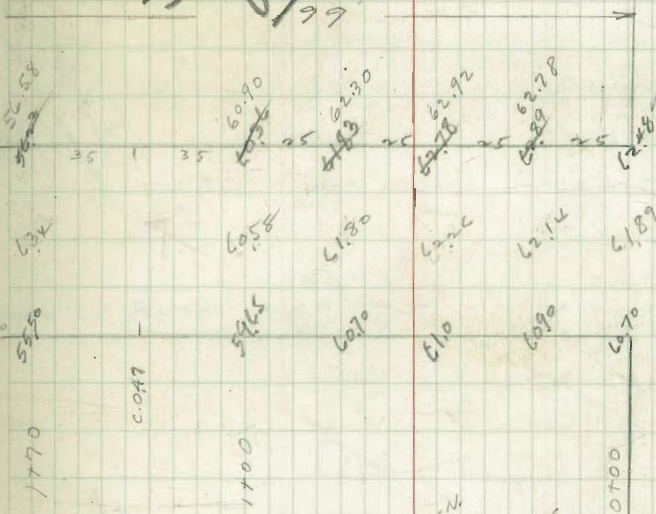 99
56.58 60.90 62.30 62.92 62.78
35 1 35 60.36 25 61.83 25 62.78 25 62.89 25 62.48
60.58 61.80 62.26 62.14 61.89
55.50 59.65 60.70 61.0 60.90 60.70
C.0.47
1+70 1+00 0+00
N.